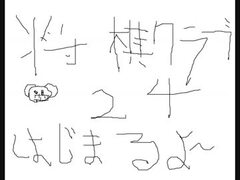 将棋クラブ
24
はじまるよ～